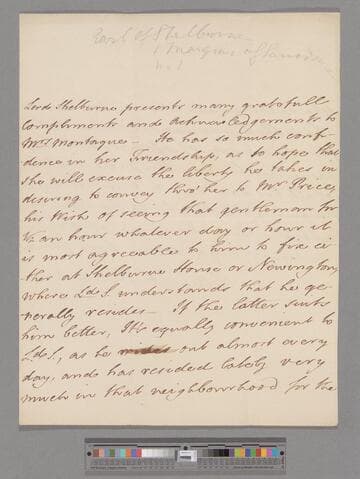 Earl of Shelburne
1 Marquis of
No 1
Lord Shelburne presents many gratefull
Compliments and acknowledgements to
Mrs Montague – He has so much confi-
dence in her Friendship, as to hope that
she will excuse the liberty he takes in
desiring to convey thro' her to Mr Price,
his Wish of seeing that gentleman for
½ an hour whatever day or hour it
is most agreeable to him to fix ei-
ther at Shelburne House or Newington,
where Ld S. understands that he ge-
nerally resides – If the latter suits
him better, It's equally convenient to
Ld S., as he rides out almost every
day, and has resided lately very
much in that neighbourhood for the